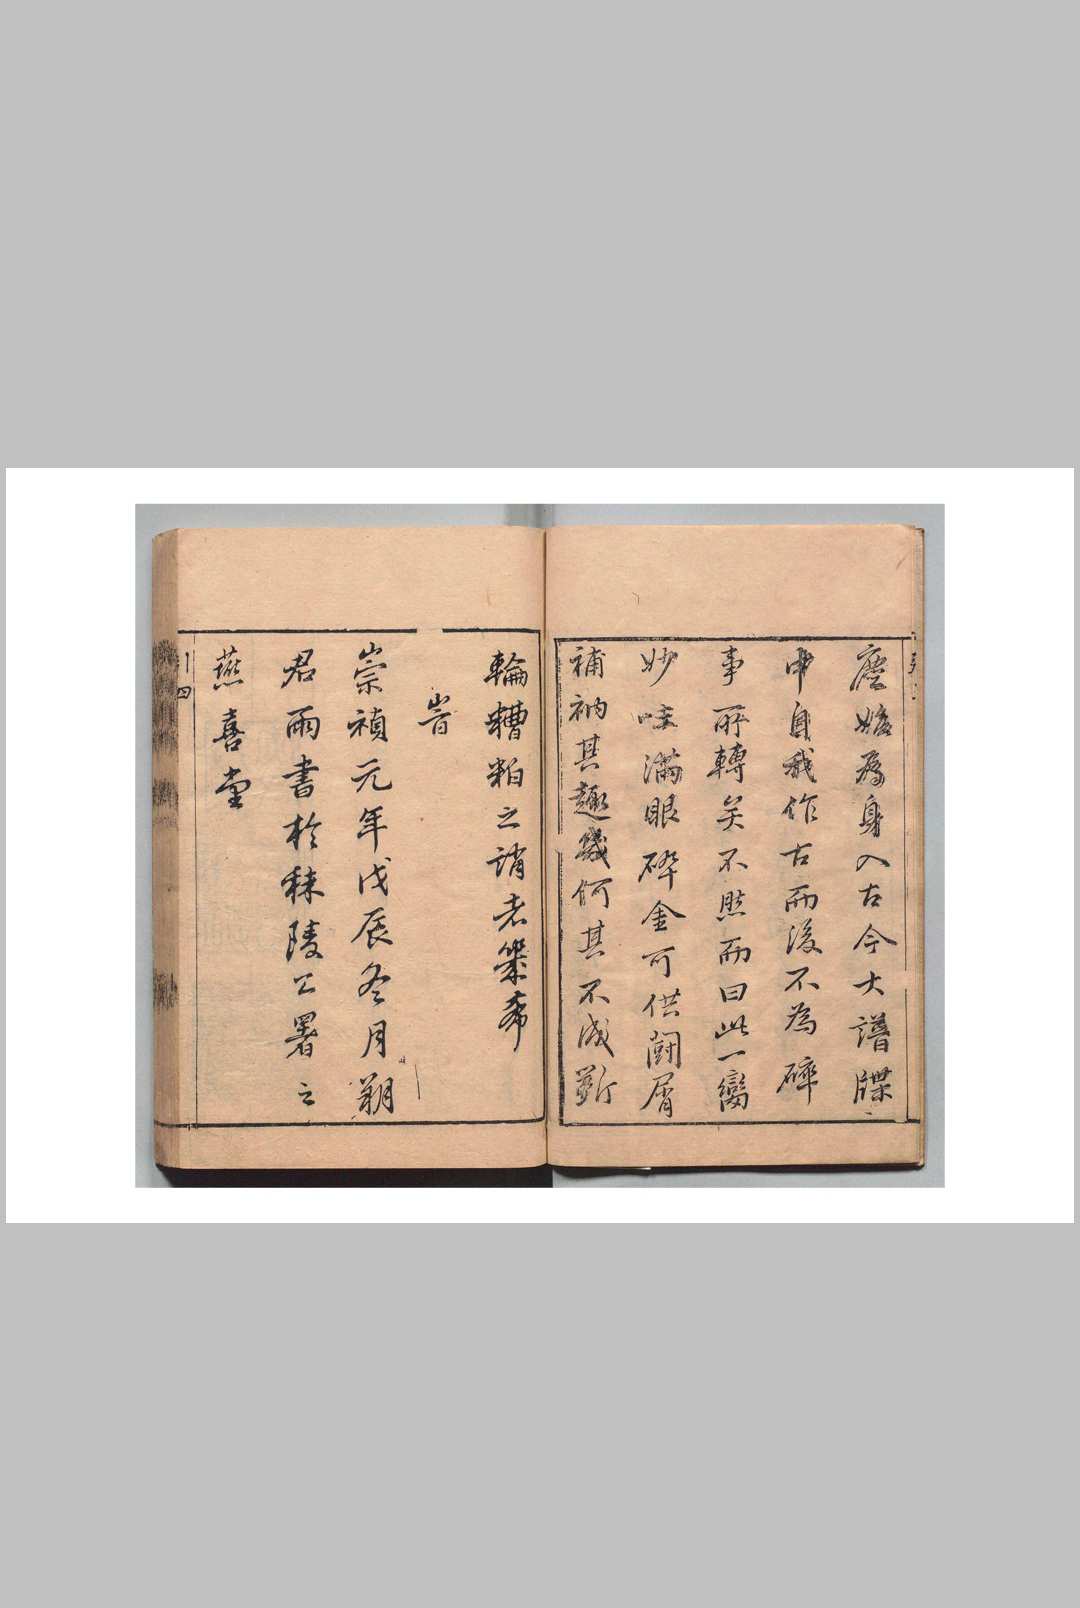 為身入古今大譜牒
中自我作古而後不為碎
事所轉矣不然而曰此一臠
妙味滿眼碎金可供鬪屑
補衲其趣幾何其不成斵
輪糟粕之誚者幾希
旹
崇禎元年戊辰冬月朔
君雨書於秣陵公署之
燕喜堂
引
四